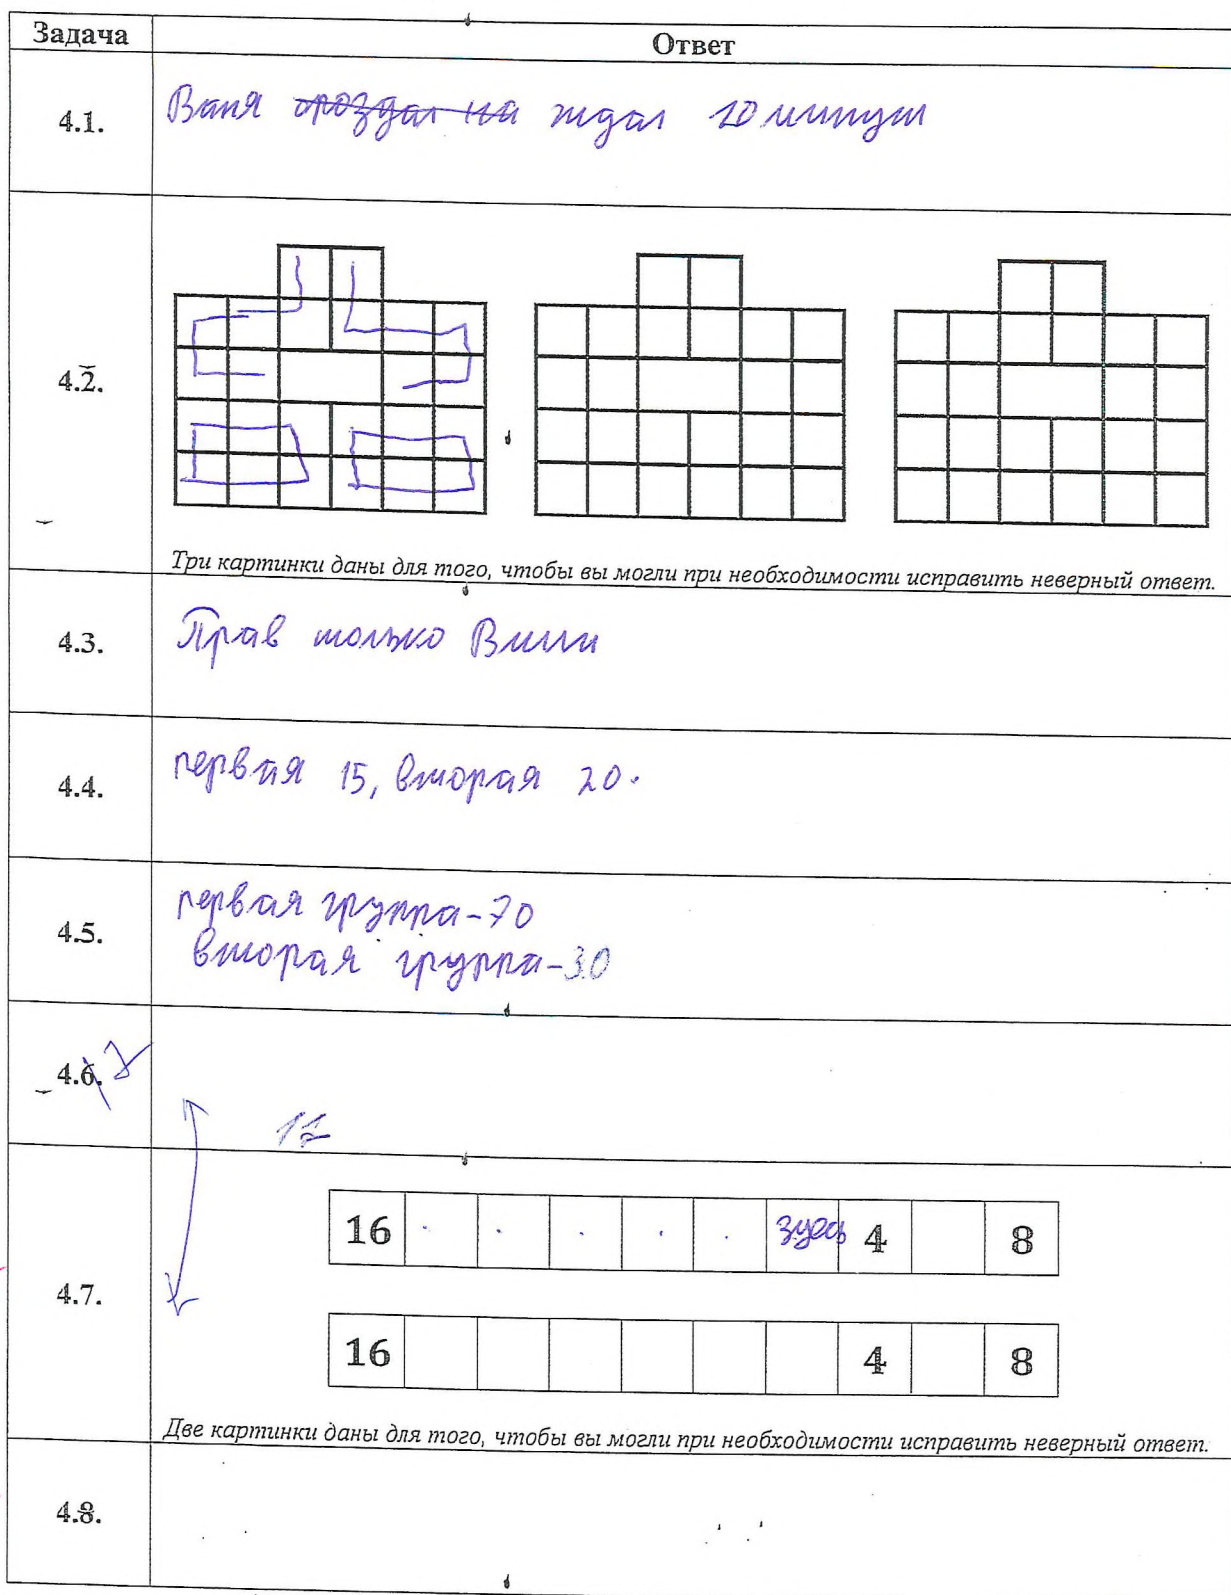 Задача Ответ
4.1. Ваня ждал 10 минут
4.2.
Три картинки даны для того, чтобы вы могли при необходимости исправить неверный ответ.
4.3. Прав только Вити
4.4. первая 15, вторая 20.
4.5. первая группа-70
вторая группа-30
4.6. 7
4.7.
16 здесь 4 8
16 4 8
Две картинки даны для того, чтобы вы могли при необходимости исправить неверный ответ.
4.8.